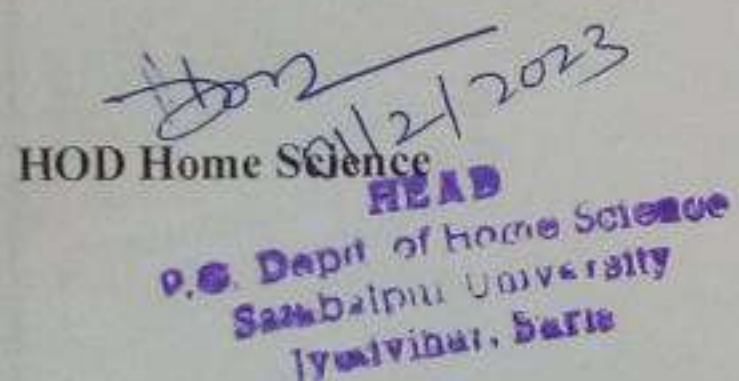 01/2/2023
HOD Home Science
HEAD
P.G. Deptt of Home Science
Sambalpur University
Jyotivihar, Burla